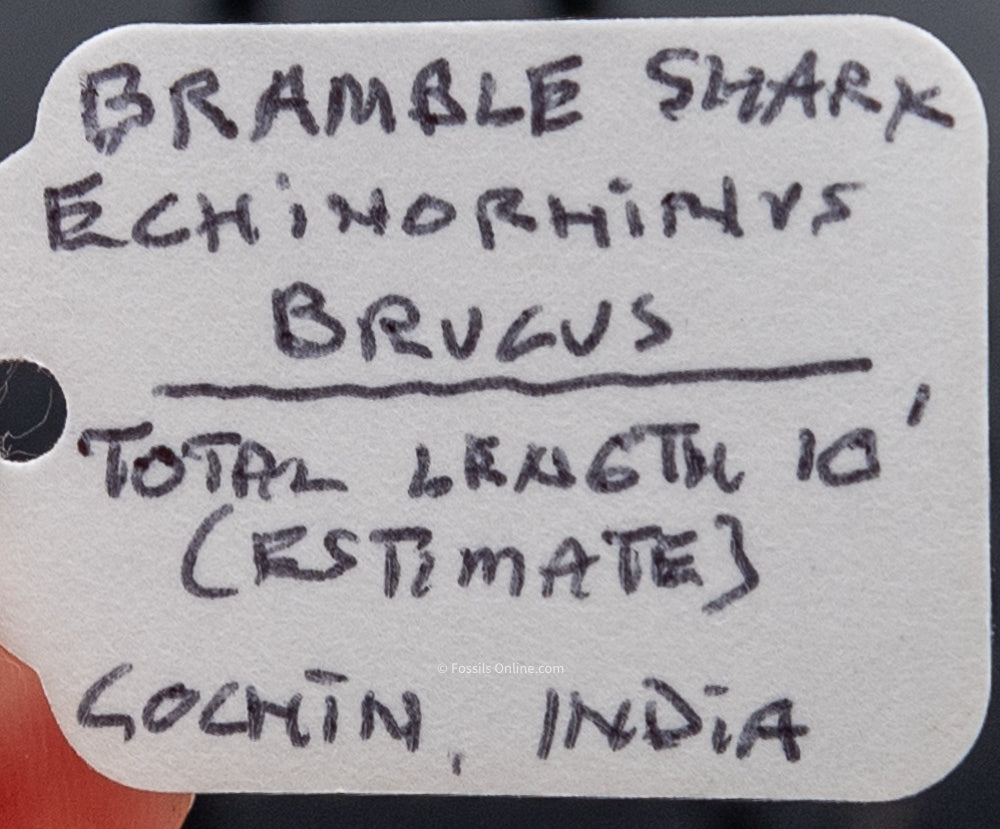 BRAMBLE SHARK
ECHINORHINUS
BRUCUS
TOTAL LENGTH 10'
(ESTIMATE)
© Fossils Online.com
COCHIN, INDIA